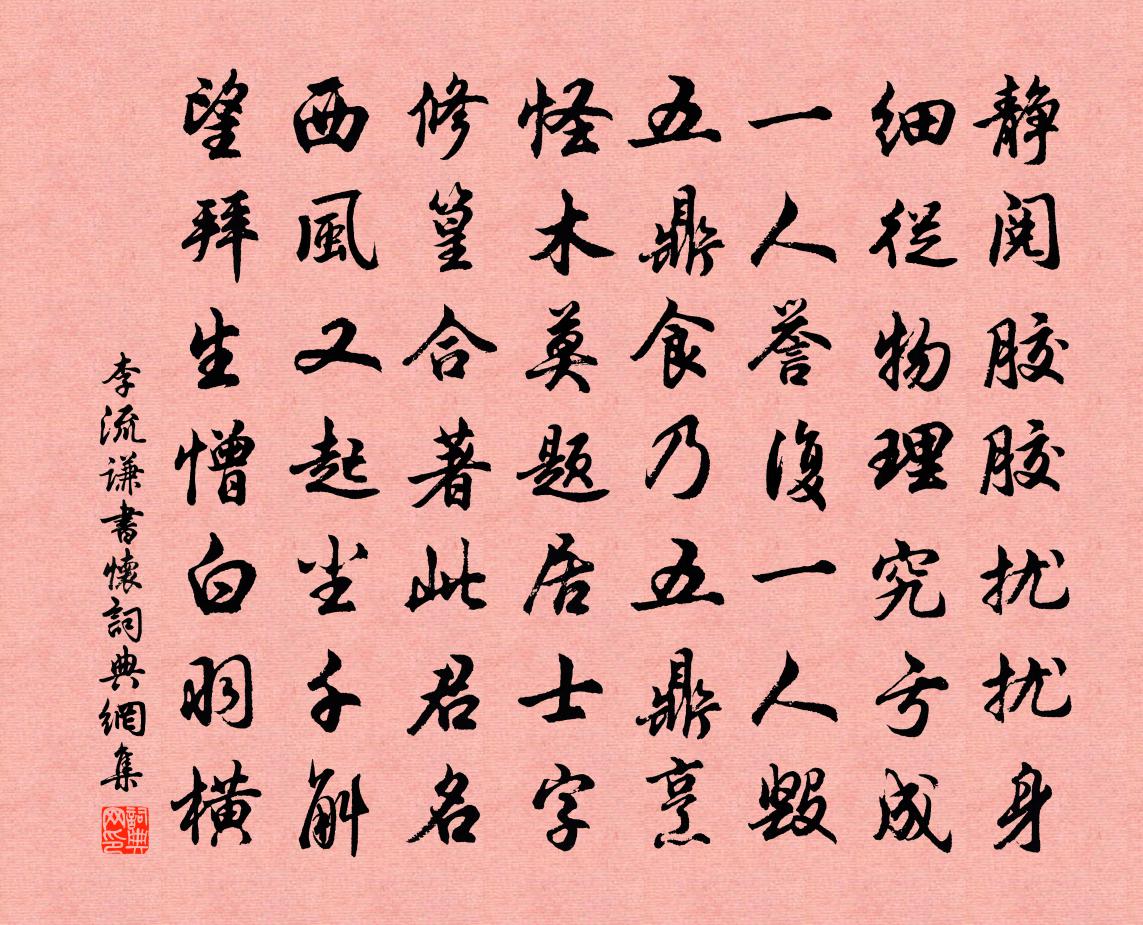 静阅胶胶扰扰身
细從物理究亏成
一人誉復一人毀
五鼎食乃五鼎烹
怪木莫题居士字
修篁合著此君名
西風又起坐千斛
望拜生憎白羽橫
李流谦書懷詞典網集
詞典网印